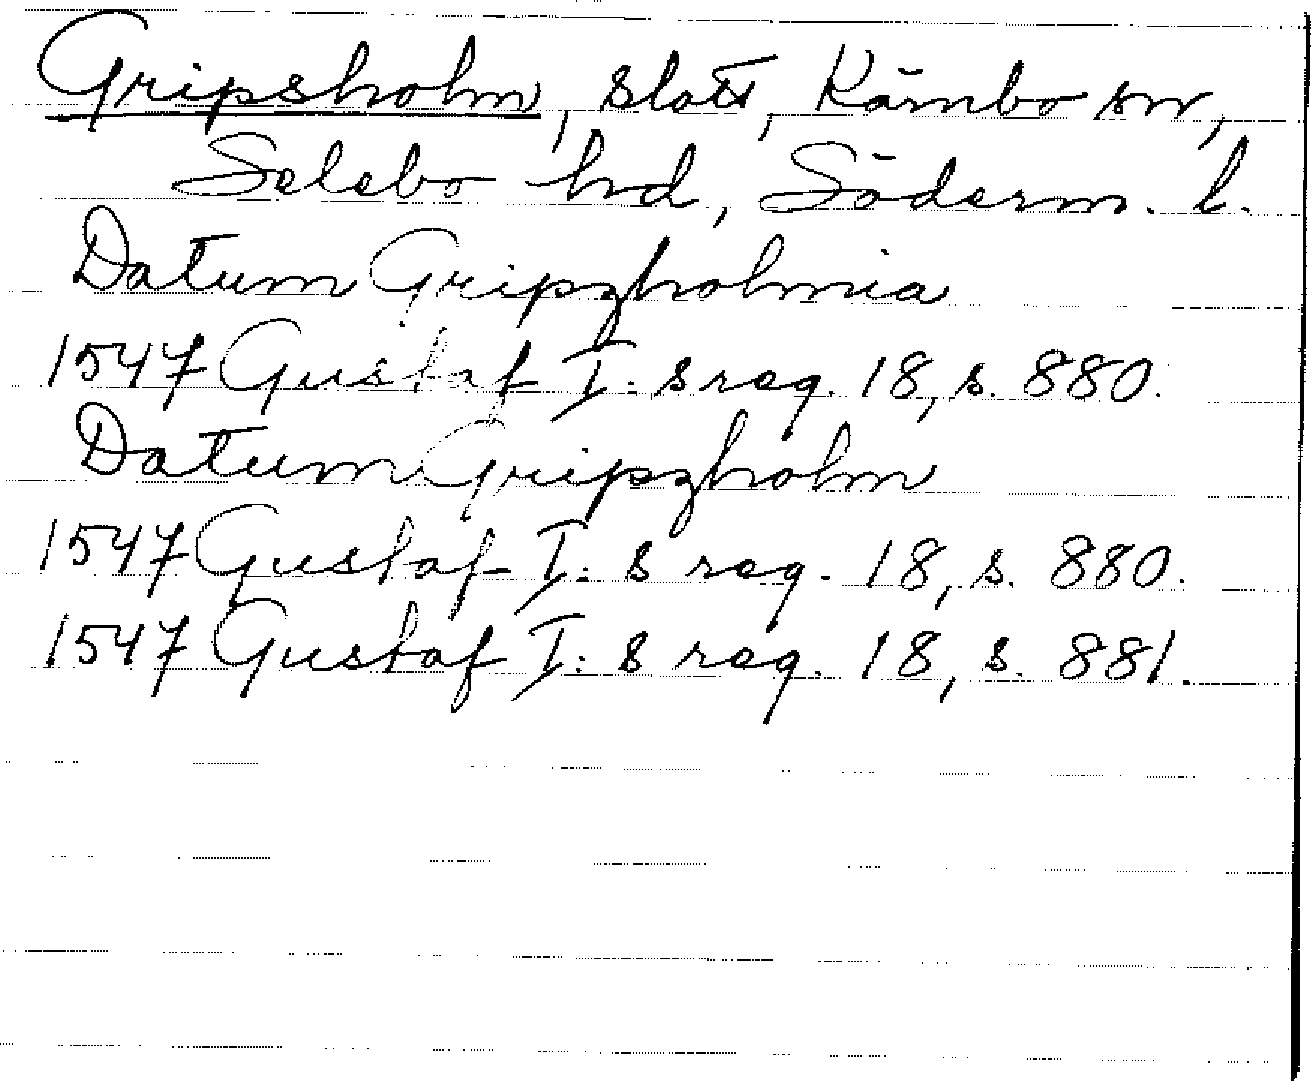 Gripsholm, slott, Kärnbo sn,
Selebo hd, Söderm. l.
Datum Gripzholmia
1547 Gustaf I:s reg. 18, s. 880.
Datum Gripzholm
1547 Gustaf I:s reg. 18, s. 880.
1547 Gustaf I:s reg. 18, s. 881.